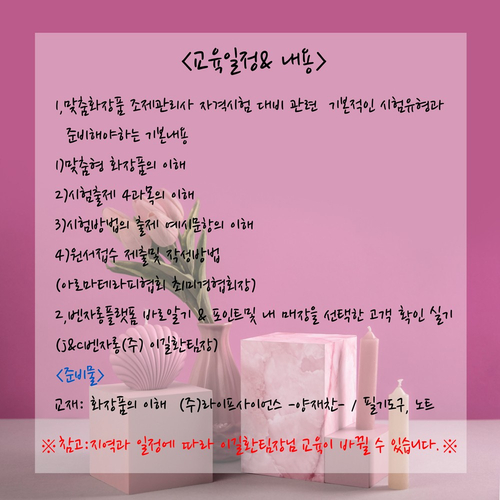 <교육일정& 내용>
1,맞춤화장품 조제관리사 자격시험 대비 관련 기본적인 시험유형과
준비해야하는 기본내용
1)맞춤형 화장품의 이해
2)시험출제 4과목의 이해
3)시험방법의 출제 예시문항의 이해
4)원서접수 제출및 작성방법
(아로마테라피협회 최미경협회장)
2,벤자롱플랫폼 바로알기 & 포인트및 내 매장을 선택한 고객 확인 실기
(j&c벤자롱(주) 이길환팀장)
<준비물>
교재: 화장품의 이해 (주)라이프사이언스 -양재찬- / 필기도구, 노트
※참고:지역과 일정에 따라 이길환팀장님 교육이 바뀔 수 있습니다.※